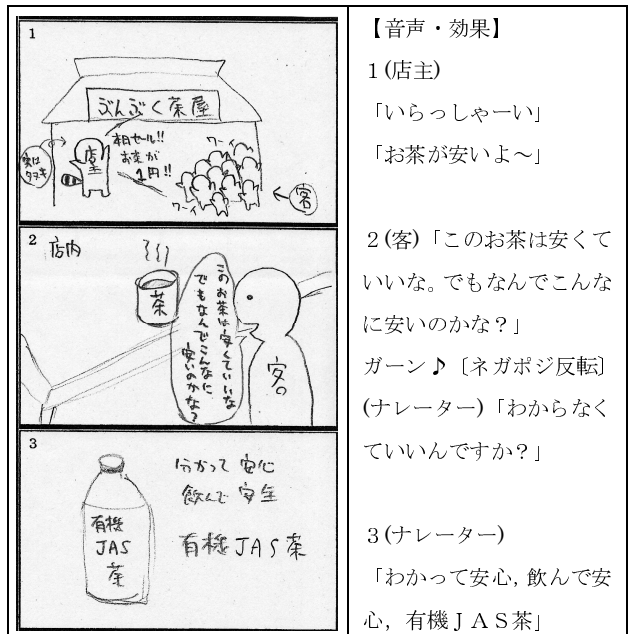 1
ぶんぶく茶屋
店主
実は
タヌキ
本日セール!!
お茶が
1円!!
ワーイ
ワーイ
客
2
店内
茶
このお茶は安くていいな
でもなんでこんなに
安いのかな?
客。
3
分かって 安心
飲んで 安全
有機JAS茶
有機
JAS
茶
【音声・効果】
１(店主)
「いらっしゃーい」
「お茶が安いよ～」
２(客)「このお茶は安くて
いいな。でもなんでこんな
に安いのかな？」
ガーン♪〔ネガポジ反転〕
(ナレーター)「わからなく
ていいんですか？」
３(ナレーター)
「わかって安心, 飲んで安
心，有機ＪＡＳ茶」